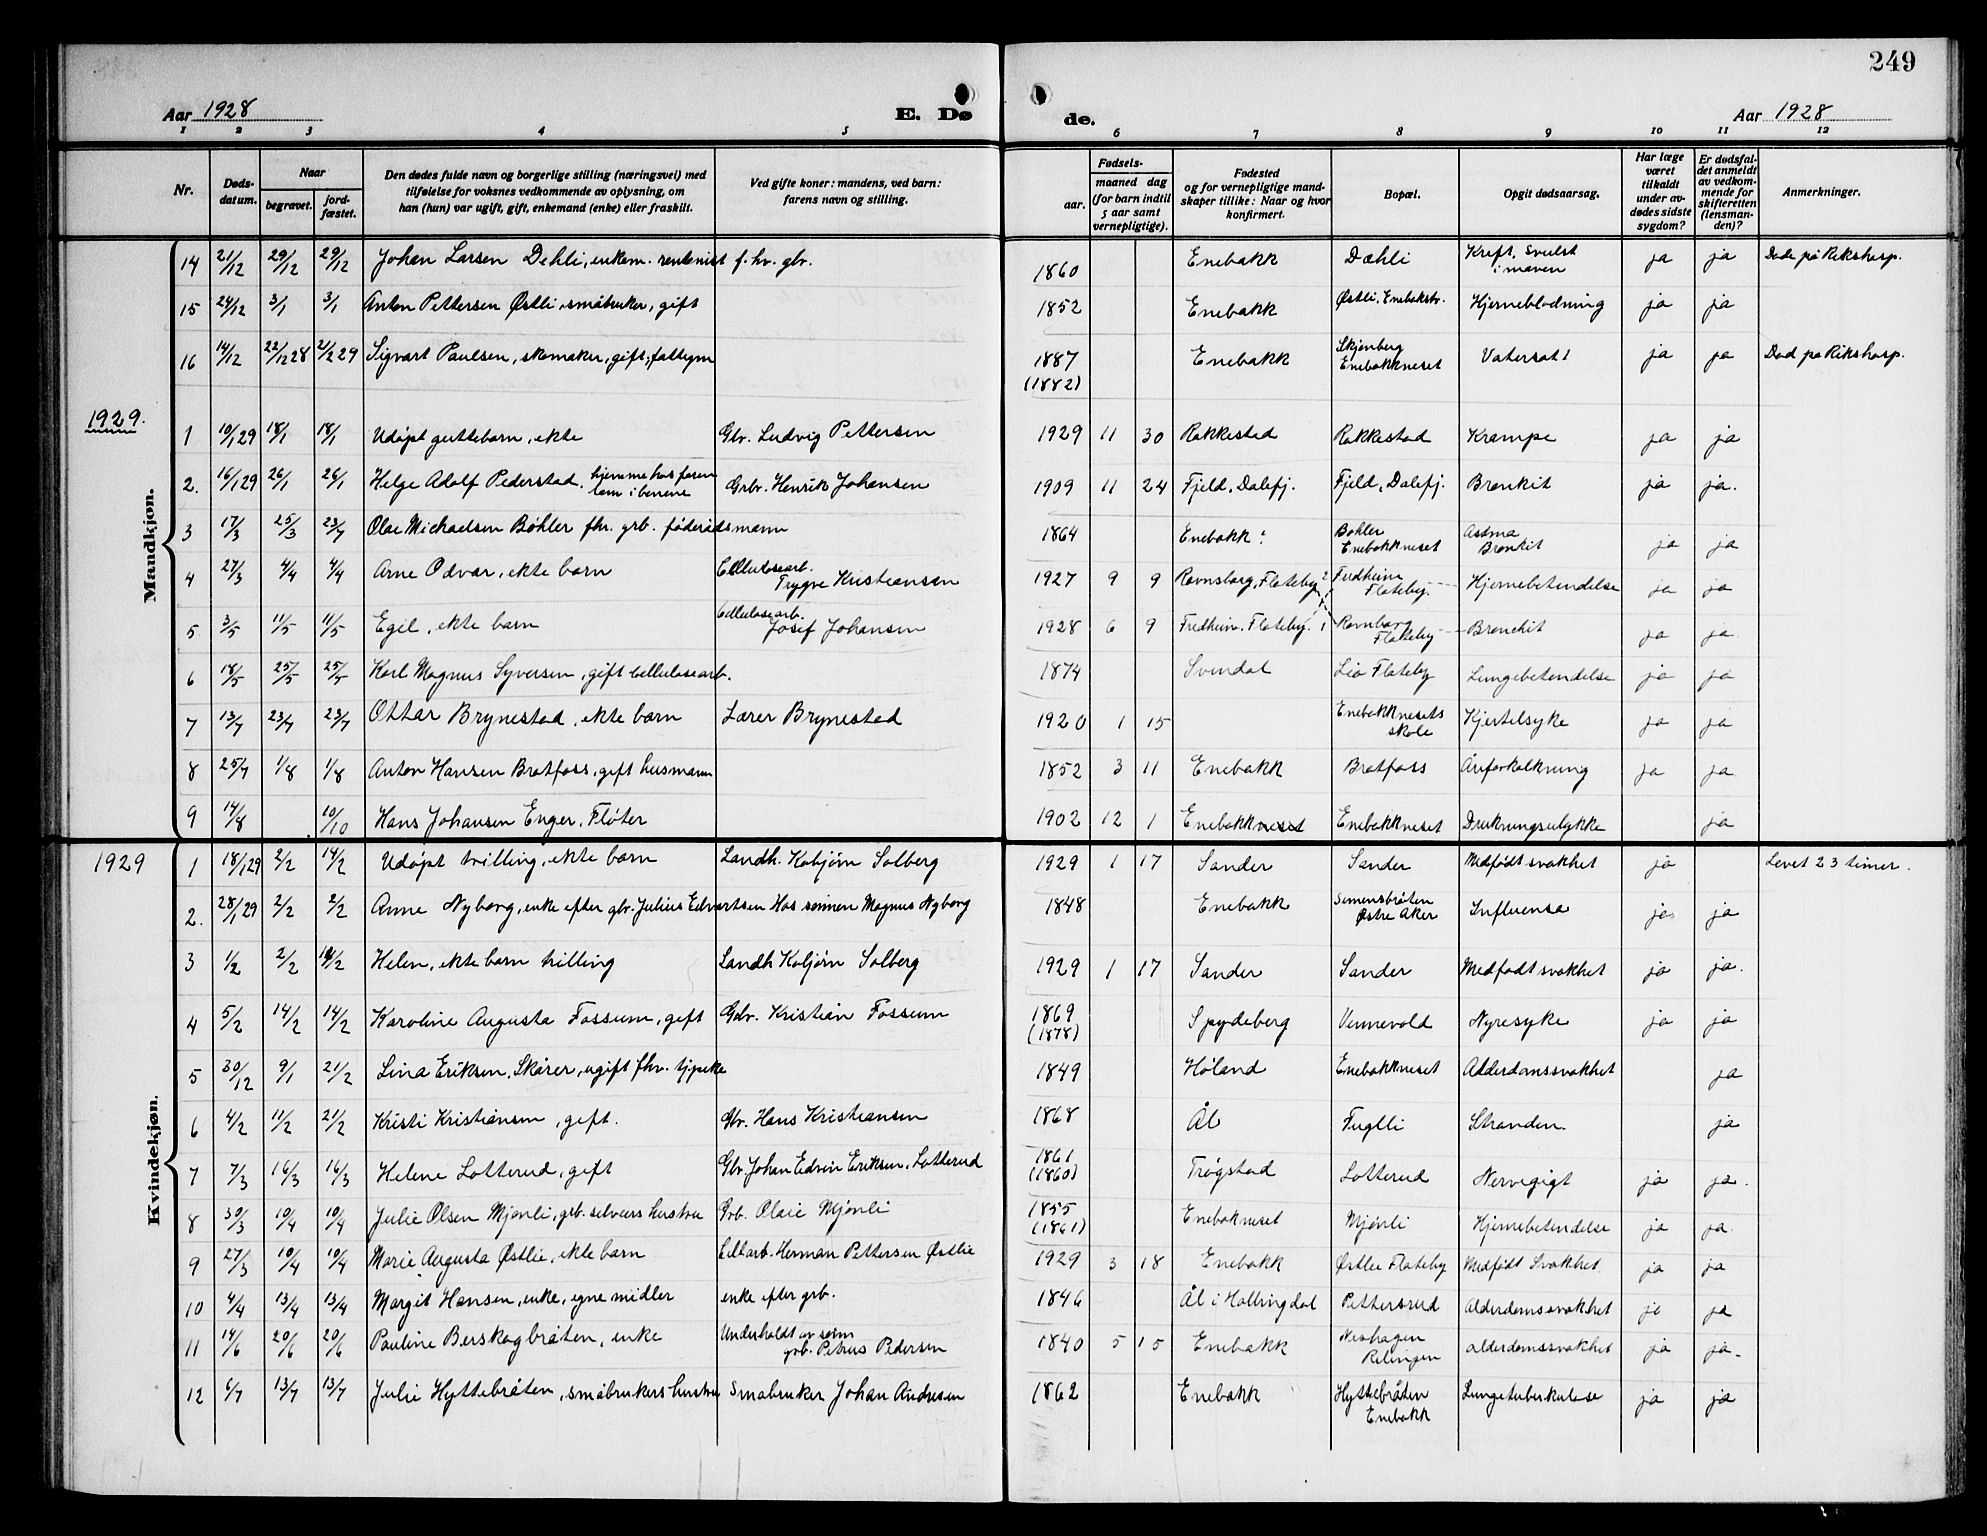 249
Aar 1928 E. Dø de. Aar 1928
1 2 3 4 5 6 7 8 9 10 11 12
Nr. Døds-datum. Naar begravet. jord-fæstet. Den dødes fulde navn og borgerlige stilling (næringsvei) med tilføielse for voksnes vedkommende av oplysning, om han (hun) var ugift, gift, enkemand (enke) eller fraskilt. Ved gifte koner: mandens, ved barn: farens navn og stilling. Fødsels- aar. maaned dag (for barn indtil 5 aar samt vernepligtige). Fødested og for vernepligtige mand-skaper tillike: Naar og hvor konfirmert. Bopæl. Opgit dødsaarsag. Har læge været tilkaldt under av-dødes sidste sygdom? Er dødsfal-det anmeldt av vedkom-mende for skifteretten (lensman-den)? Anmerkninger.
14 21/12 29/12 29/12 Johan Larsen Dehli, enkem. rentenist f. hv. gbr. 1860 Enebakk Dæhli Kreft, Svulst i maven ja ja Døde på Rikshosp.
15 24/12 3/1 3/1 Anton Pettersen Østli, småbruker, gift 1852 Enebakk Østli, Enebakbr. Hjerneblødning ja ja
16 14/12 22/12 28 2/2 29 Sigvart Paulsen, skomaker, gift, fattigm 1887 (1882) Enebakk Skjønberg Enebakkneset Vatersot ja ja Død på Rikshosp.
1929.
Mandkjøn.
1 10/1 29 18/1 18/1 Udøpt guttebarn, ekte Gbr. Ludvig Pettersen 1929 11 30 Rakkestad Rakkestad Krampe ja ja
2. 16/1 29 26/1 26/1 Helge Adolf Pederstad. hjemme hos faren lam i benene Grbr. Henrik Johansen 1909 11 24 Fjeld, Dalefj. Fjeld, Dalefj. Bronkit ja ja.
3 17/3 25/3 23/7 Olae Michaelsen Bøhler fhr. grb. føderådsmann 1864 Enebakk: Bøhler Enebakkneset Astma Bronkit ja ja
4 27/3 4/4 4/4 Arne Odvar, ekte barn Cellulosearb. Trygve Kristiansen 1927 9 9 Ravnsborg, Flateby 2 Fredheim Flateby. Hjernebetendelse ja ja
5 3/5 11/5 11/5 Egil, ekte barn Cellulosearb. Josef Johansen 1928 6 9 Fredheim, Flateby. 1 Ravnborg Flateby Bronchit ja ja.
6 18/5 25/5 25/5 Karl Magnus Syversen, gift cellulosearb. 1874 Svindal Lia Flateby Lungebetendelse ja ja
7 13/7 23/7 23/7 Ottar Brynestad, ekte barn Lærer Brynestad 1920 1 15 Enebakknesets skole Kjertelsyke ja ja
8 25/7 1/8 1/8 Anton Hansen Bratfoss, gift husmann 1852 3 11 Enebakk Bratfoss Åreforkalkning ja ja
9 14/8 10/10 Hans Johansen Enger, Fløter 1902 12 1 Enebakkneset Enebakkneset Drukningsulykke ja
1929
Kvindekjøn.
1 18/1 29 2/2 14/2 Udøpt trilling, ekte barn Landh. Kobjørn Solberg 1929 1 17 Sander Sander Medfødt svakhet ja Levet 23 timer.
2. 28/1 29 2/2 2/2 Anne Nyborg, enke efter gbr. Julius Edvartsen Hos sønnen Magnus Nyborg 1848 Enebakk Simensbråten Østre Aker Influensa ja ja
3 1/2 2/2 14/2 Helen, ekte barn trilling Landh Koljørn Solberg 1929 1 17 Sander Sander Medfødt svakhet ja ja.
4 5/2 14/2 14/2 Karoline Augusta Fossum, gift Gdr. Kristian Fossum 1869 (1878) Spydeberg Vennevold Nyresyke ja ja
5 30/12 9/1 21/2 Lina Eriksen, Skårer, ugift fhv. tjpike 1849 Høland Enebakkneset Alderdomssvakhet ja
6 4/2 11/2 21/2 Kristi Kristiansen, gift. Gbr. Hans Kristiansen 1868 Ål Fuglli Stranden. ja
7 7/3 16/3 16/3 Helene Lotterud, gift Gbr. Johan Edvin Eriksen, Lotterud 1861 (1860) Trøgstad Lotterud Nervegigt ja ja.
8 30/3 10/4 10/4 Julie Olsen Mjønli, grb. selveiers hustru Grb. Olaie Mjønli 1855 (1861) Enebakneset Mjønli Hjernebetendelse ja ja.
9 27/3 10/4 10/4 Marie Augusta Østlie, ekte barn Cellarb. Herman Pettersen Østlie 1929 3 18 Enebakk Østlie Flateby Medfødt Svakhet. ja ja
10 4/4 13/4 13/4 Margit Hansen, enke, egne midler enke efter grb. 1846 Ål i Hallingdal Pettersrud Alderdomssvakhet ja ja
11 14/6 20/6 20/6 Pauline Berskogbråten, enke Underholdt av sønn grb. Petrus Pedersen 1840 5 15 Enebakk Neshagen Relingen alderdomssvakhet ja ja
12 6/7 13/7 13/7 Julie Hyttebråten, småbrukers hustru Småbruker Johan Andresen 1862 Enebakk Hyttebråten Enebakk Lungetuberkulose ja ja